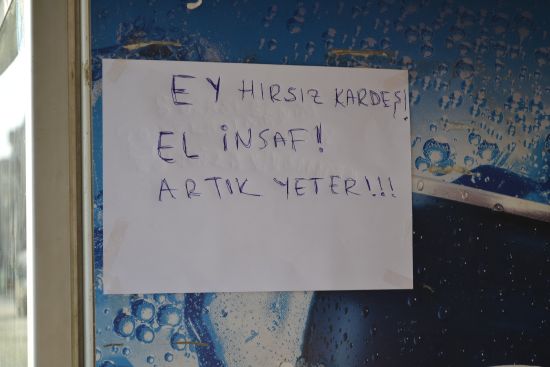 EY HIRSIZ KARDEŞ!
EL İNSAF!
ARTIK YETER!!!